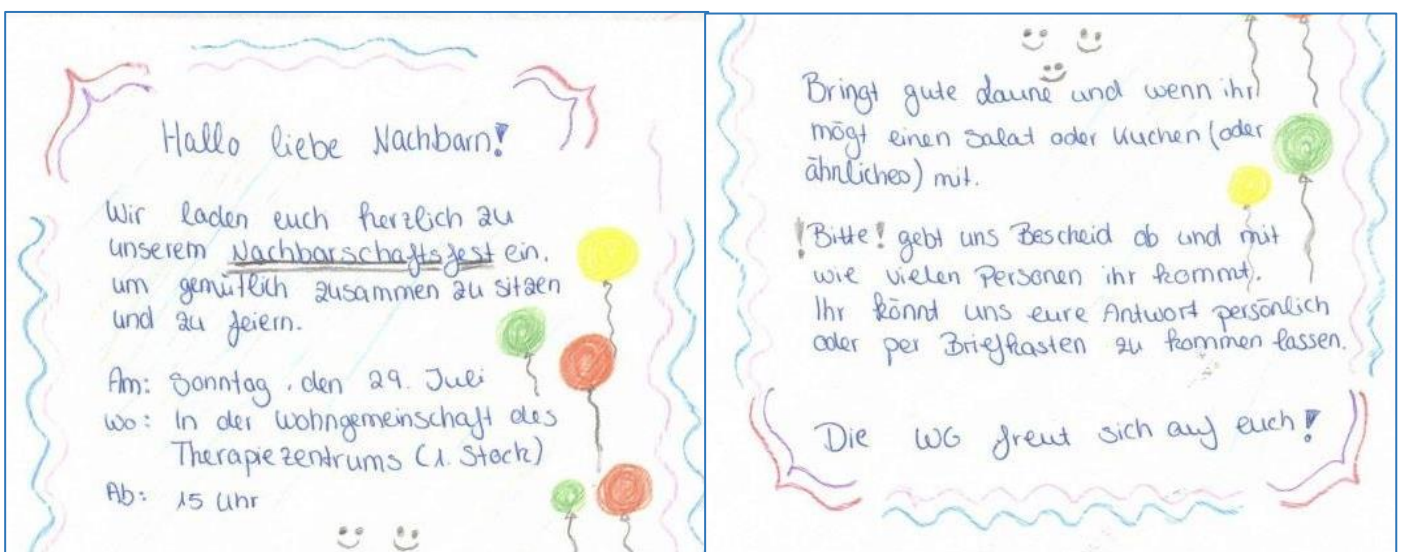 Hallo liebe Nachbarn!
Wir laden euch herzlich zu
unserem Nachbarschaftsfest ein,
um gemütlich zusammen zu sitzen
und zu feiern.
Am: Sonntag, den 29. Juli
Wo: In der Wohngemeinschaft des
Therapiezentrums (1. Stock)
Ab: 15 Uhr
Bringt gute Laune und wenn ihr
mögt einen Salat oder Kuchen (oder
ähnliches) mit.
!Bitte! gebt uns Bescheid ob und mit
wie vielen Personen ihr kommt.
Ihr könnt uns eure Antwort persönlich
oder per Briefkasten zu kommen lassen.
Die WG freut sich auf euch!